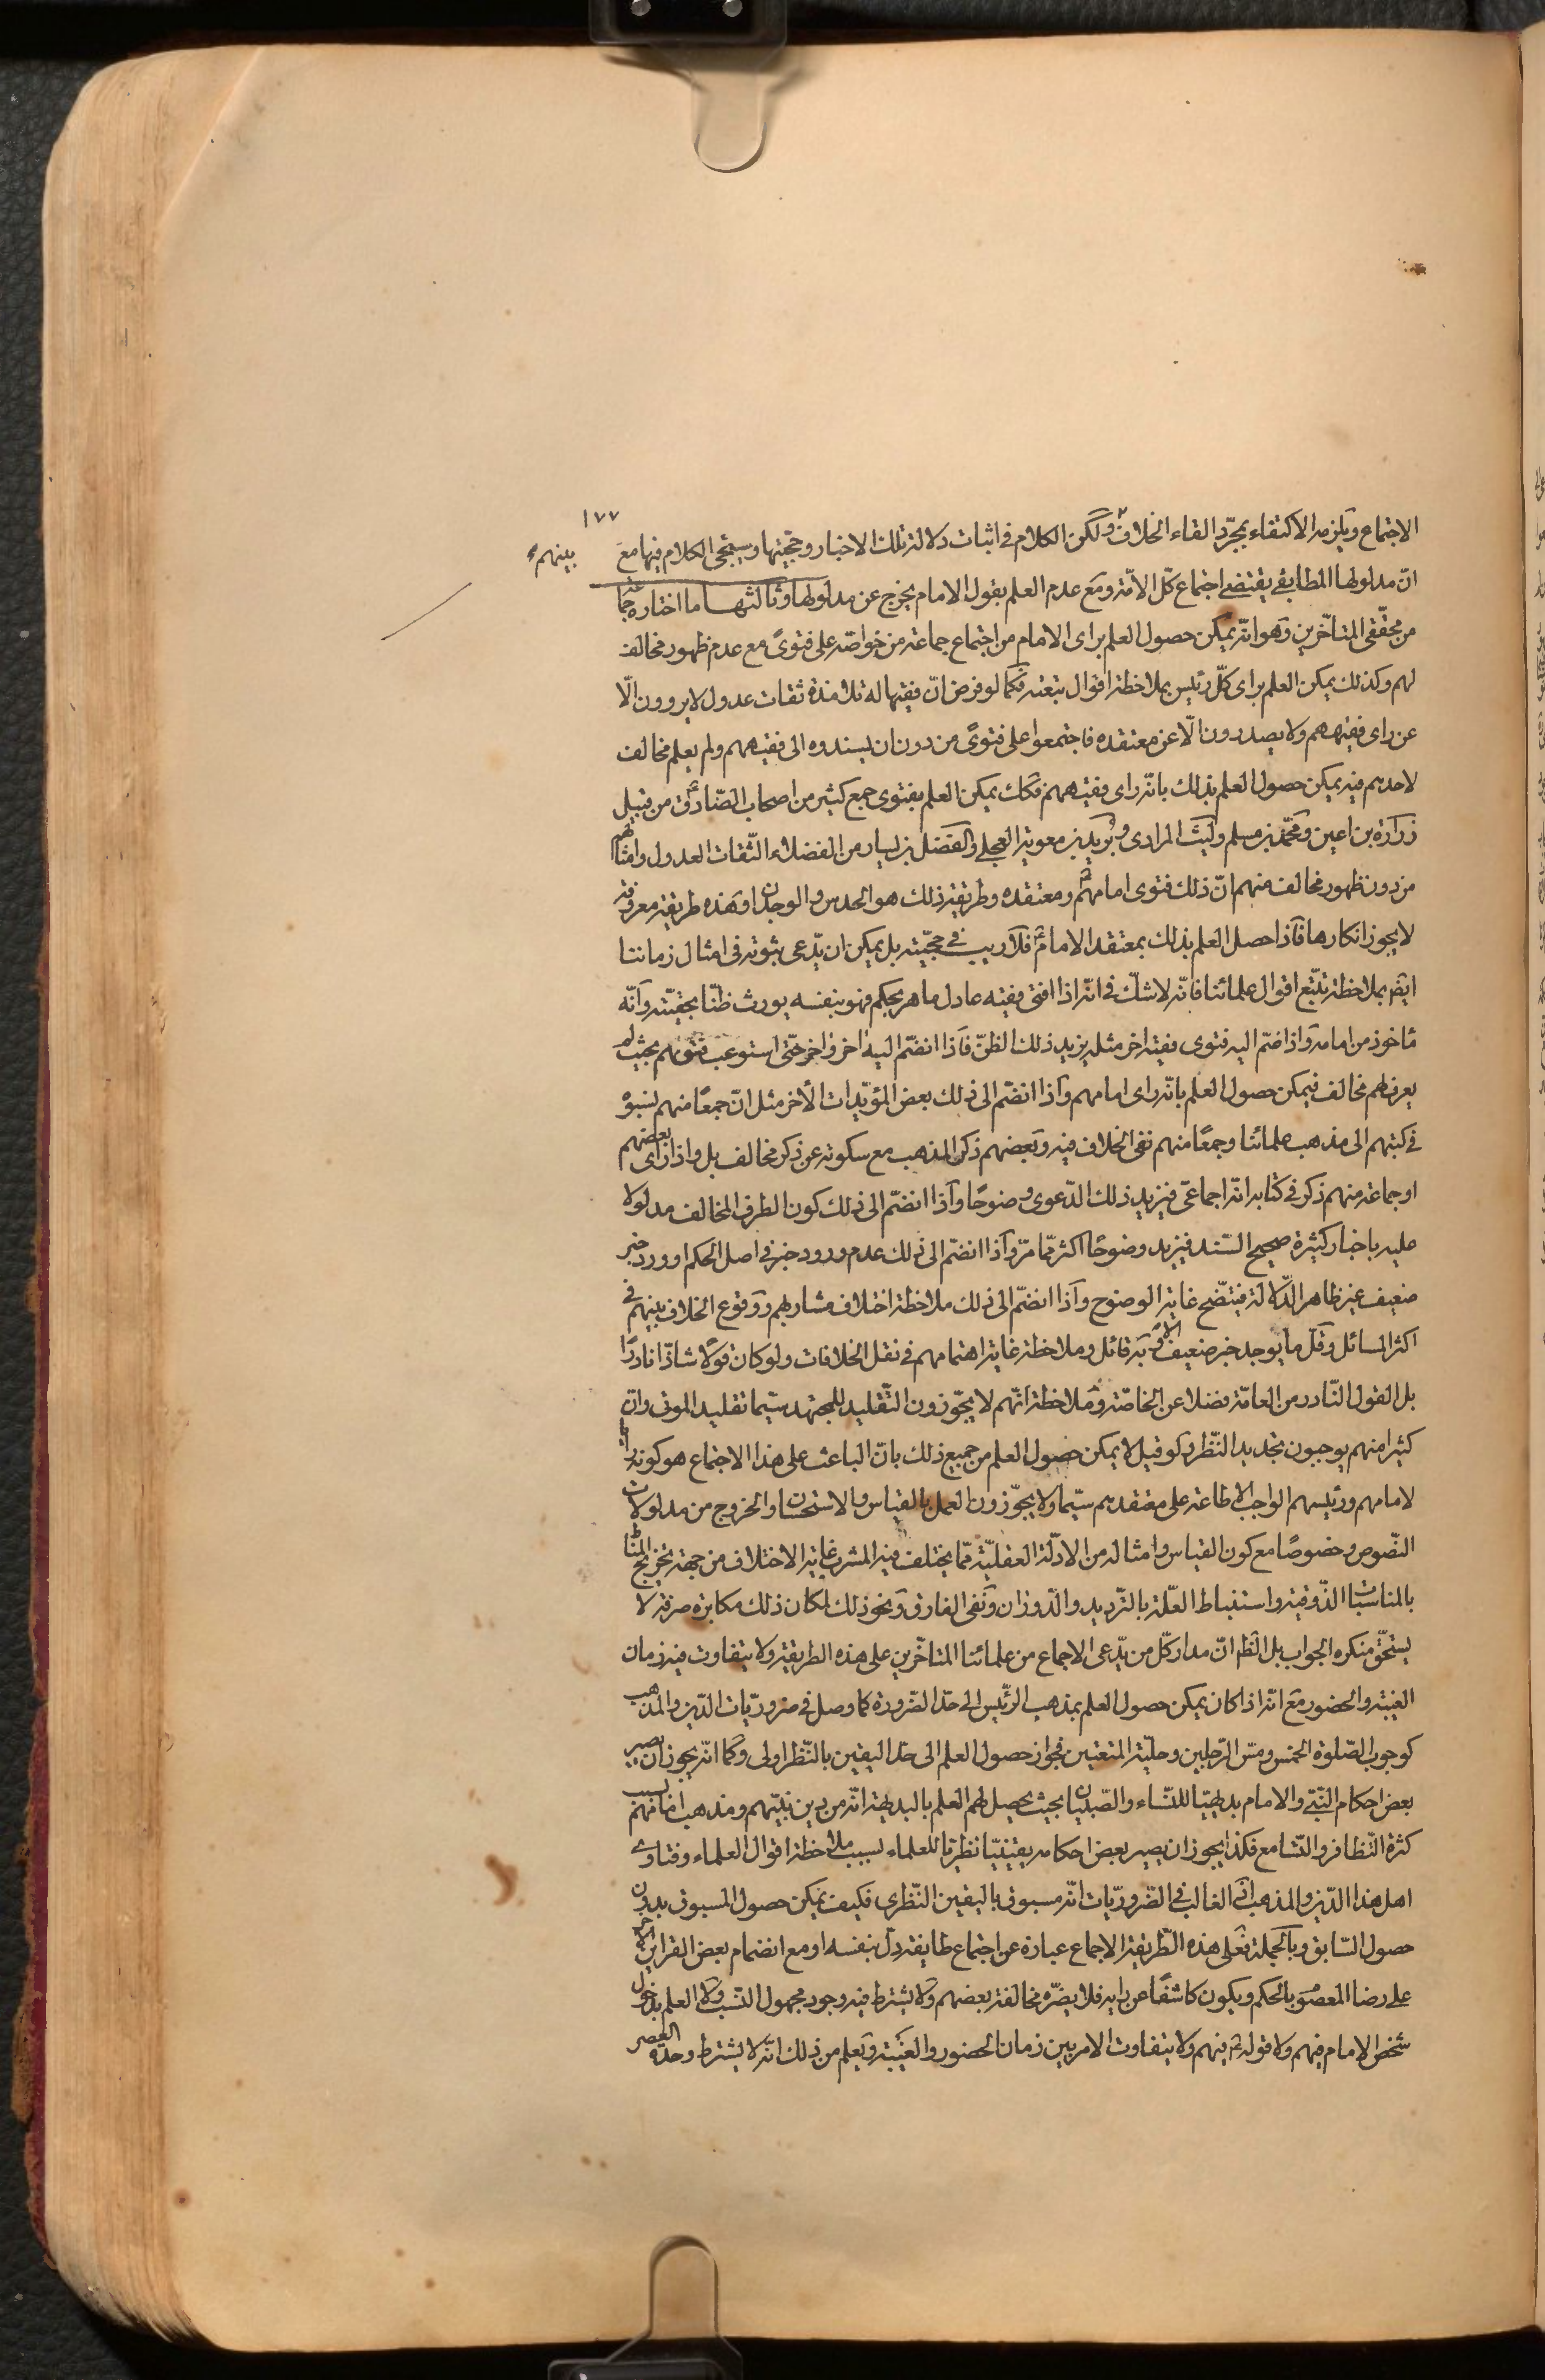 ١٧٧
الاجتماع ويلزمه الاكتفاء بمجرّد القاء الخلاف ولكن الكلام فى اثبات دلالة تلك الاخبار وحجيتها وسيجئ الكلام فيها مع
بينهم
انّ مدلولها المطابقى يقتضى اجتماع كلّ الامّة ومع عدم العلم بقول الامام يخرج عن مدلولها وثالثها ما اختاره جماعة
من محقّقى المتاخّرين وهو انّه يمكن حصول العلم براى الامام من اجتماع جماعة من خواصّه على فتوىً مع عدم ظهور مخالف
لهم وكذلك يمكن العلم براى كلّ رئيس بملاحظة اقوال تبعته فكما لو فرض انّ فقيها له تلامذة ثقات عدول لا يروون الّا
عن راى فقيههم ولا يصدرون الّا عن معتقده فاجتمعوا على فتوىً من دون ان يسندوه الى فقيههم ولم يعلم مخالف
لاحدهم فيه يمكن حصول العلم بذلك بانّه راى فقيههم فكك يمكن العلم بفتوى جمع كثير من اصحاب الصّادق ع من قبيل
زرارة بن اعين ومحمّد بن مسلم وليث المرادى وبُريد بن معوية العجلى والفضل بن يسار من الفضلاء الثّقات العدول وامثالهم
من دون ظهور مخالف منهم انّ ذلك فتوى امامهم ومعتقده وطريقة ذلك هو الحدس والوجدان وهذه طريقة معروفة
لا يجوز انكارها فاذا حصل العلم بذلك بمعتقد الامام ع فلا ريب فى حجّيته بل يمكن ان يدّعى ثبوته فى امثال زماننا
ايضا بملاحظة تتبّع اقوال علمائنا فانّه لا شكّ فى انّه اذا افتى فقيه عادل ماهر بحكم فهو بنفسه يورث ظنّا بحقيّته وانّه
ماخوذ من امامه واذا ضمّ اليه فتوى فقيه اخر مثله يزيد ذلك الظنّ فاذا انضمّ اليه اخر واخر حتّى استوعب فتويهم بحيث لم
يعرف لهم مخالف فيمكن حصول العلم بانّه راى امامهم واذا انضمّ الى ذلك بعض المؤيّدات الأخر مثل انّ جمعًا منهم نسبوه
فى كتبهم الى مذهب علمائنا وجمعًا منهم نفى الخلاف فيه وبعضهم ذكر المذهب مع سكوته عن ذكر مخالف بل واذا راى بعضهم
او جماعة منهم ذكر فى كتابه انّه اجماعىّ فيزيد ذلك الدّعوى وضوحًا واذا انضمّ الى ذلك كون الطرف المخالف مدلولا
عليه باخبار كثيرة صحيح السّند فيزيد وضوحًا اكثر ممّا مرّ واذا انضمّ الى ذلك عدم ورود خبر فى اصل الحكم او ورد خبر
ضعيف غير ظاهر الدّلالة فيتّضح غاية الوضوح واذا انضمّ الى ذلك ملاحظة اختلاف مشاربهم ووقوع الخلاف بينهم فى
اكثر المسائل وقلّ ما يوجد خبر ضعيف الّا وبه قائل وملاحظة غاية اهتمامهم فى نقل الخلافات ولو كان قولًا شاذّا نادرًا
بل القول النّادر من العامّة فضلا عن الخاصّة وملاحظة انّهم لا يجوّزون التّقليد للمجتهد سيّما تقليد الموتى وانّ
كثيرا منهم يوجبون تجديد النّظر ولو قيل لا يمكن حصول العلم من جميع ذلك بانّ الباعث على هذا الاجتماع هو كونه رايا
لامامهم ورئيسهم الواجب الاطاعة على معتقدهم سيّما ولا يجوّزون العمل بالقياس والاستحسان والخروج من مدلولات
النّصوص وخصوصًا مع كون القياس وامثاله من الادلّة العقليّة ممّا يختلف فيه المشرب غاية الاختلاف من جهة تخريج المناط
بالمناسبات الذّوقية واستنباط العلّة بالتّرديد والدّوران ونفى الفارق ونحو ذلك لكان ذلك مكابرة صرفة لا
يستحقّ منكره الجواب بل الظ انّ مدار كلّ من يدّعى الاجماع من علمائنا المتاخّرين على هذه الطريقة ولا يتفاوت فيه زمان
الغيبة والحضور مع انّه اذا كان يمكن حصول العلم بمذهب الرّئيس الى حدّ الضّرورة كما وصل فى ضروريّات الدّين والمذهب
كوجوب الصّلوة الخمس ومسّ الرّجلين وحليّة المتعتين فجواز حصول العلم الى حدّ اليقين بالنّظر اولى وكما انّه يجوز ان يصير
بعض احكام النّبىّ والامام بديهيّا للنّساء والصّبيان بحيث يحصل لهم العلم بالبديهة انّه من دين نبيّهم ومذهب امامهم بسبب
كثرة التّظافر والتّسامع فكذا يجوز ان يصير بعض احكامه يقينيّا نظريّا للعلماء بسبب ملاحظة اقوال العلماء وفتاوى
اهل هذا الدّين والمذهب اذ الغالب فى الضّروريّات انّه مسبوق باليقين النّظرى فكيف يمكن حصول المسبوق بدون
حصول السّابق وبالجملة فعلى هذه الطّريقة الاجماع عبارة عن اجتماع طايفة دلّ بنفسه او مع انضمام بعض القراين الأخر
على رضا المعصوم بالحكم ويكون كاشفًا عن رايه فلا يضرّه مخالفة بعضهم ولا يشترط فيه وجود مجهول النّسب ولا العلم بدخول
شخص الامام فيهم ولا قوله ع فيهم ولا يتفاوت الامر بين زمان الحضور والغيبة ويعلم من ذلك انّه لا يشترط وحدة العصر